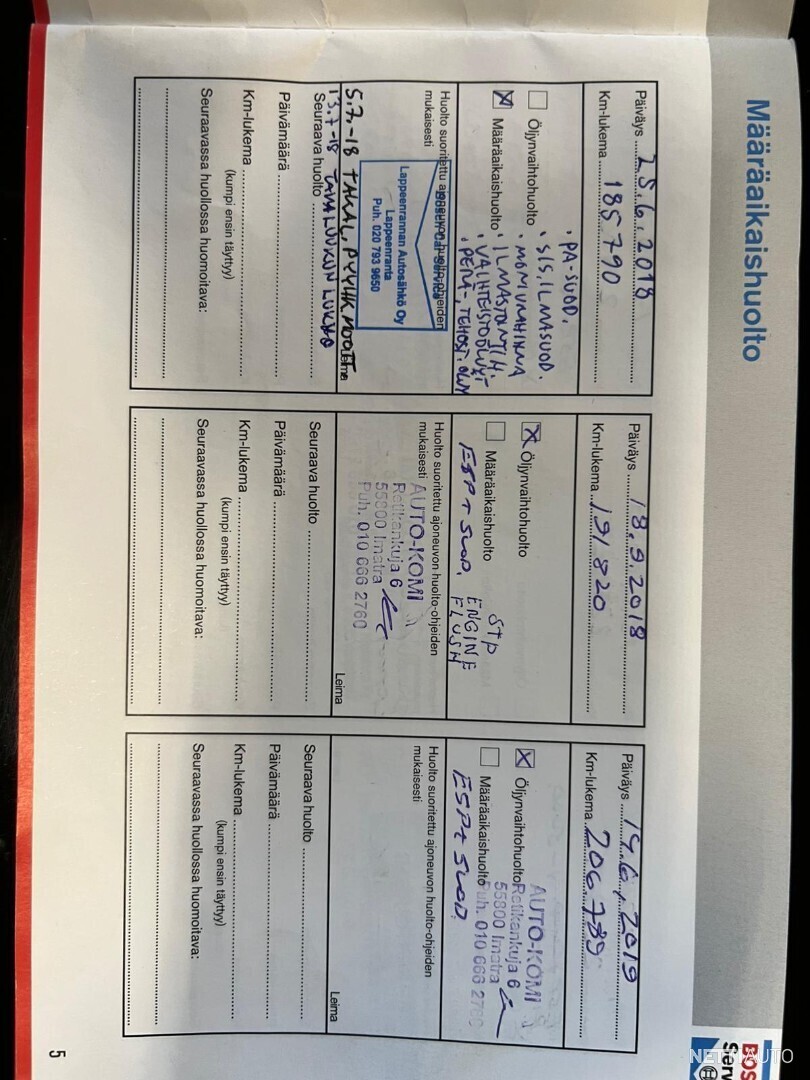 Määräaikaishuolto
BOS
Serv
Päiväys 25.6.2018
Km-lukema 185 790
Öljynvaihtohuolto
Määräaikaishuolto
• PA-SUOD.
• SIS. ILMASUOD.
• MONIURAHIHNA
• ILMASTOINTIH.
• VAIHTEISTOÖLJYT
• PERÄ-, TEHOST. ÖLJY
Huolto suoritettu ajoneuvon huolto-ohjeiden
mukaisesti
Bosch Car Service
Lappeenrannan Autosähkö Oy
Lappeenranta
Puh. 020 793 9650
5.7.-18 TAKAL. PYYHK. MOOTT.
13.7-18 TAKALUUKUN LUKKO
Seuraava huolto
Päivämäärä
Km-lukema
(kumpi ensin täyttyy)
Seuraavassa huollossa huomoitava:
Päiväys 18.9.2018
Km-lukema 191 820
Öljynvaihtohuolto
Määräaikaishuolto
STP
ENGINE
FLUSH
ESP+ SUOD.
Huolto suoritettu ajoneuvon huolto-ohjeiden
mukaisesti
AUTO-KOMI
Retikankuja 6
55800 Imatra
Puh. 010 666 2760
Leima
Seuraava huolto
Päivämäärä
Km-lukema
(kumpi ensin täyttyy)
Seuraavassa huollossa huomoitava:
Päiväys 14.6.2019
Km-lukema 206 789
Öljynvaihtohuolto
Määräaikaishuolto
AUTO-KOMI
Retikankuja 6
55800 Imatra
Puh. 010 666 2760
ESP+ SUOD.
Huolto suoritettu ajoneuvon huolto-ohjeiden
mukaisesti
Leima
Seuraava huolto
Päivämäärä
Km-lukema
(kumpi ensin täyttyy)
Seuraavassa huollossa huomoitava:
5
NETTIAUTO